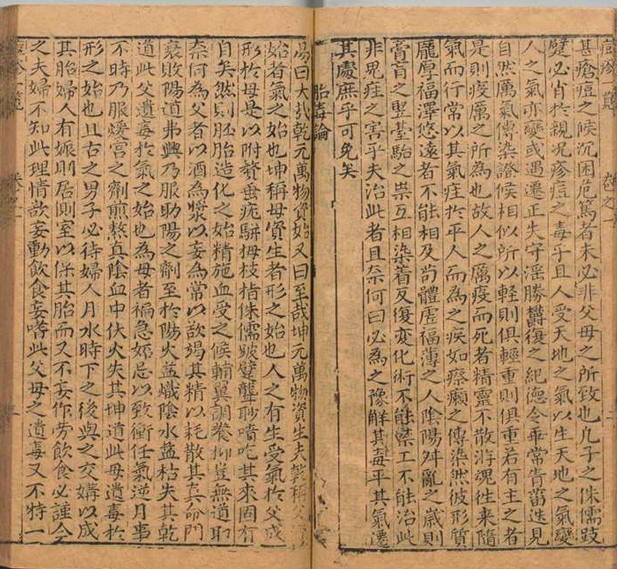 甚瘡痘之候沉困危篤者未必非父母之所致也凡子之侏儒跂
躄必肖於親况疹痘之毒乎且人受天地之氣以生天地之氣變
人之氣亦變或遇遷正失守淫勝鬱復之紀德令乖常眚菑迭見
自然厲氣傳染證候相似所以輕則俱輕重則俱重若有主之者
是則疾厲之所為也故人之厲疫而死者精靈不散游魂往来隨
氣而行常以其氣疰於平人而為之疾如瘵癩之傳染然彼形質
厖厚福澤悠遠者不能相及尚體孱福薄之人陰陽舛亂之歲則
膏肓之竪臺駘之祟互相染着反復変化術不能禁工不能治此
非鬼疰之害乎夫治此者且柰何曰必為之豫解其毒平其氣遷
其處庶乎可免矣
胎毒論
易曰大哉乾元萬物資始又曰至哉坤元萬物資生夫乾稱父
始者氣之始也坤稱母資生者形之始也人之有生受氣於父成
形於母是以附贅垂疣駢拇枝指侏儒跛躄聾聹喑吃其来固有
自矣然則胚胎造化之始精施血受之候輔翼調養抑豈無道耶
奈何為父者以酒為漿以妄為常以欲竭其精以耗散其真命門
衰敗陽道弗興乃服助陽之劑至於陽火益熾陰水益枯失其乾
道此父遺毒於氣之始也為母者褊急妬忌以致衝任氣逆月事
不時乃服煖宫之劑煎熬真陰血中伏火失其坤道此母遺毒於
形之始也且古之男子必待婦人月水時下之後與之交媾以成
其胎婦人有娠則居側室以保其胎而又不妄作勞飲食必謹今
之夫婦不知此理情欲妄動飲食妄嗜此父母之遺毒又不特一